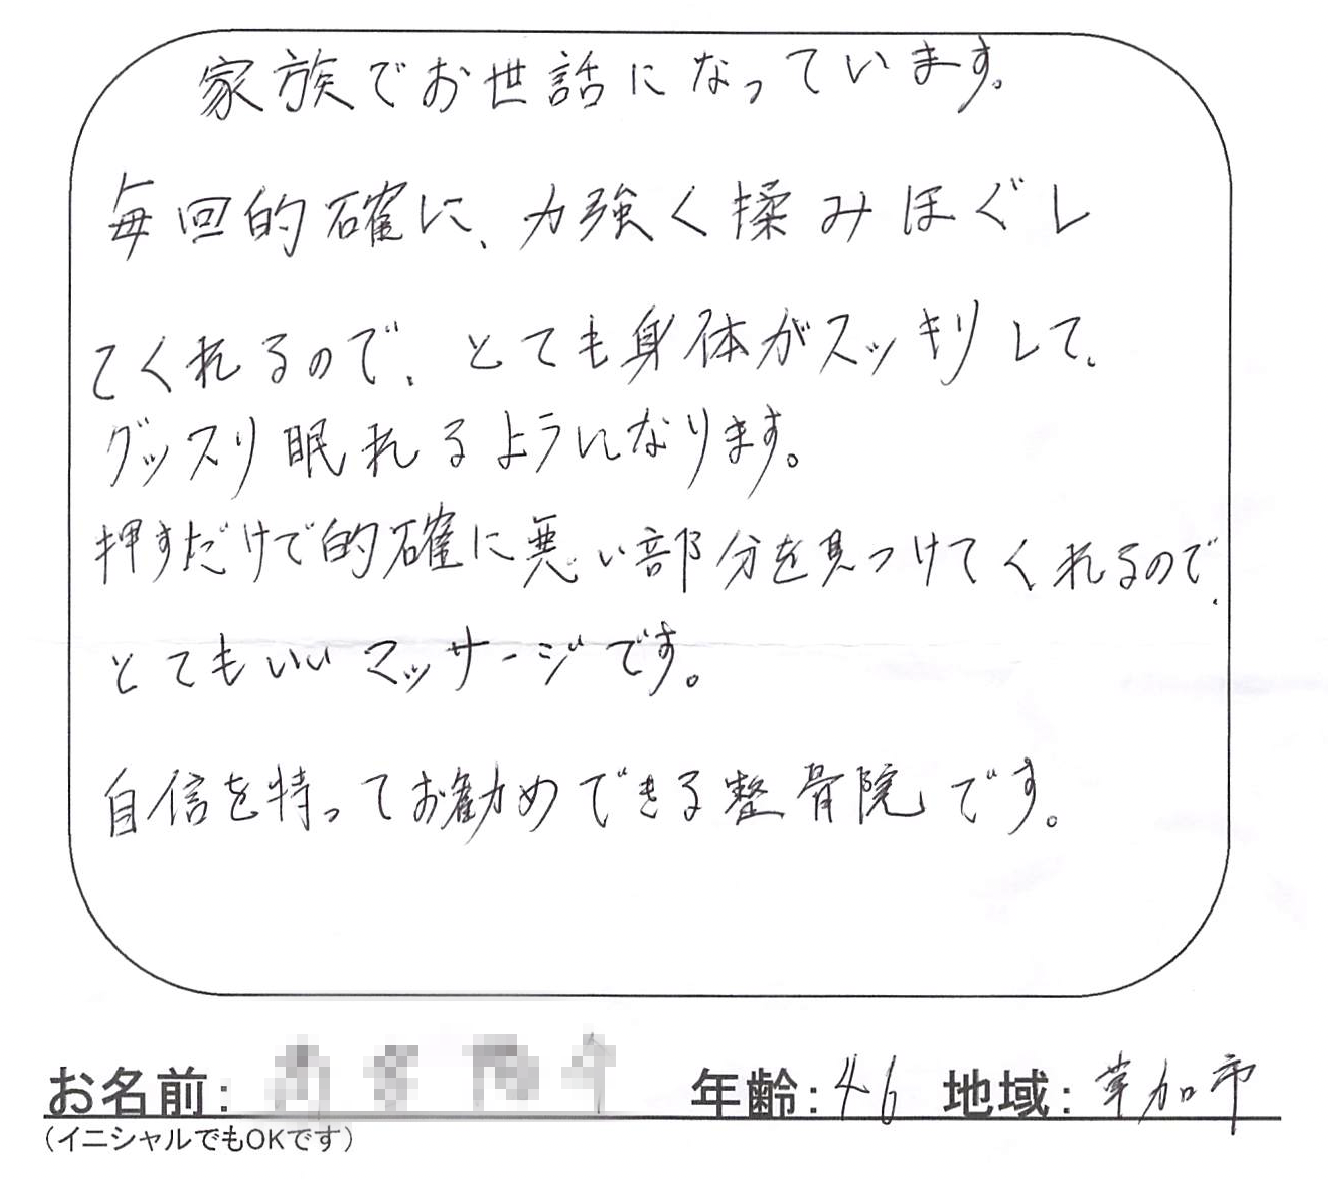 家族でお世話になっています。
毎回的確に、力強く揉みほぐし
てくれるので、とても身体がスッキリして、
グッスリ眠れるようになります。
押すだけで的確に悪い部分を見つけてくれるので、
とてもいいマッサージです。
自信を持ってお勧めできる整骨院です。
お名前: 年齢:46 地域:草加市
(イニシャルでもOKです)